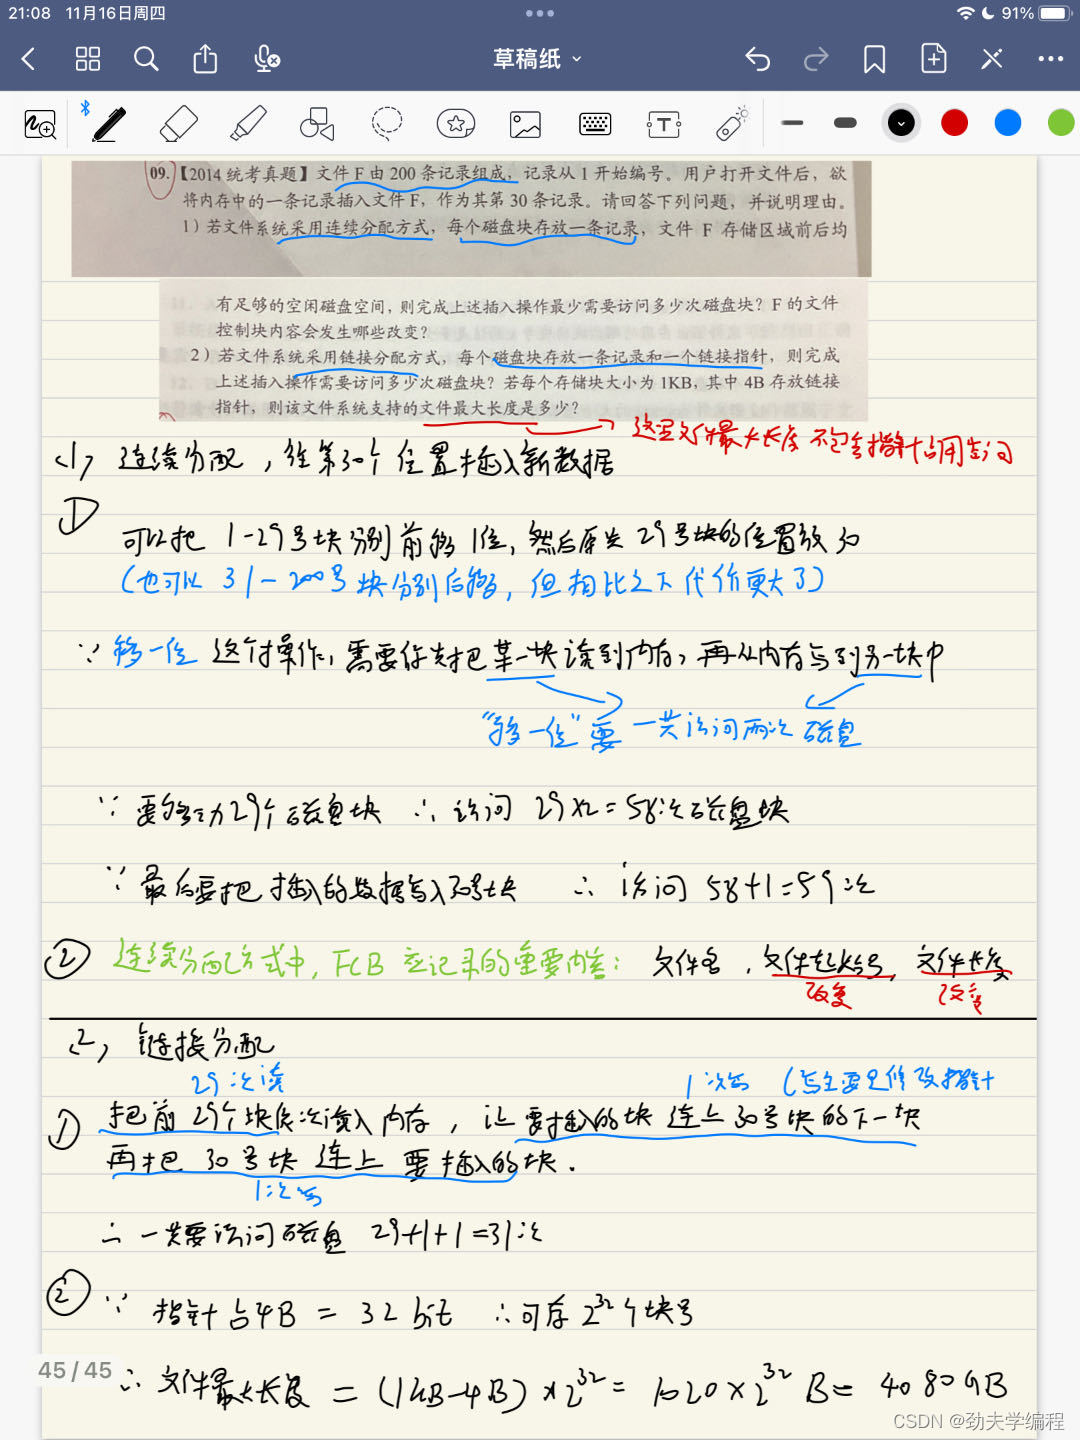 21:08 11月16日周四
91%
草稿纸
09.【2014 统考真题】文件 F 由 200 条记录组成，记录从 1 开始编号。用户打开文件后，欲
将内存中的一条记录插入文件 F，作为其第 30 条记录。请回答下列问题，并说明理由。
1）若文件系统采用连续分配方式，每个磁盘块存放一条记录，文件 F 存储区域前后均
有足够的空闲磁盘空间，则完成上述插入操作最少需要访问多少次磁盘块？F 的文件
控制块内容会发生哪些改变？
2）若文件系统采用链接分配方式，每个磁盘块存放一条记录和一个链接指针，则完成
上述插入操作需要访问多少次磁盘块？若每个存储块大小为 1KB，其中 4B 存放链接
指针，则该文件系统支持的文件最大长度是多少？
这里文件最大长度 不包含指针占用空间
(1) 连续分配，往第30个位置插入新数据
①
可以把 1-29号块分别前移1位，然后原先29号块的位置放30
(也可以 31-200号块分别后移，但相比之下代价更大了)
∵ 移一位 这个操作，需要你先把某一块读到内存，再从内存写到另一块中
“移一位”要一共访问两次磁盘
∵ 要移动29个磁盘块 ∴ 访问 29×2=58次磁盘块
∵ 最后要把插入的数据写入30号块 ∴ 访问 58+1=59次
② 连续分配方式中，FCB 应记录的重要内容：文件名，文件起始号，文件长度
改变 改变
(2) 链接分配
29次读 1次写 (写主要是修改指针
① 把前29个块依次读入内存，让要插入的块连上30号块的下一块
再把 30号块 连上 要插入的块.
1次写
∴ 一共要访问磁盘 29+1+1=31次
② ∵ 指针占4B = 32 bit ∴可存 2^32个块号
45 / 45
∴ 文件最大长度 = (1KB-4B) × 2^32 = 1020 × 2^32 B = 4080GB
CSDN @劲夫学编程